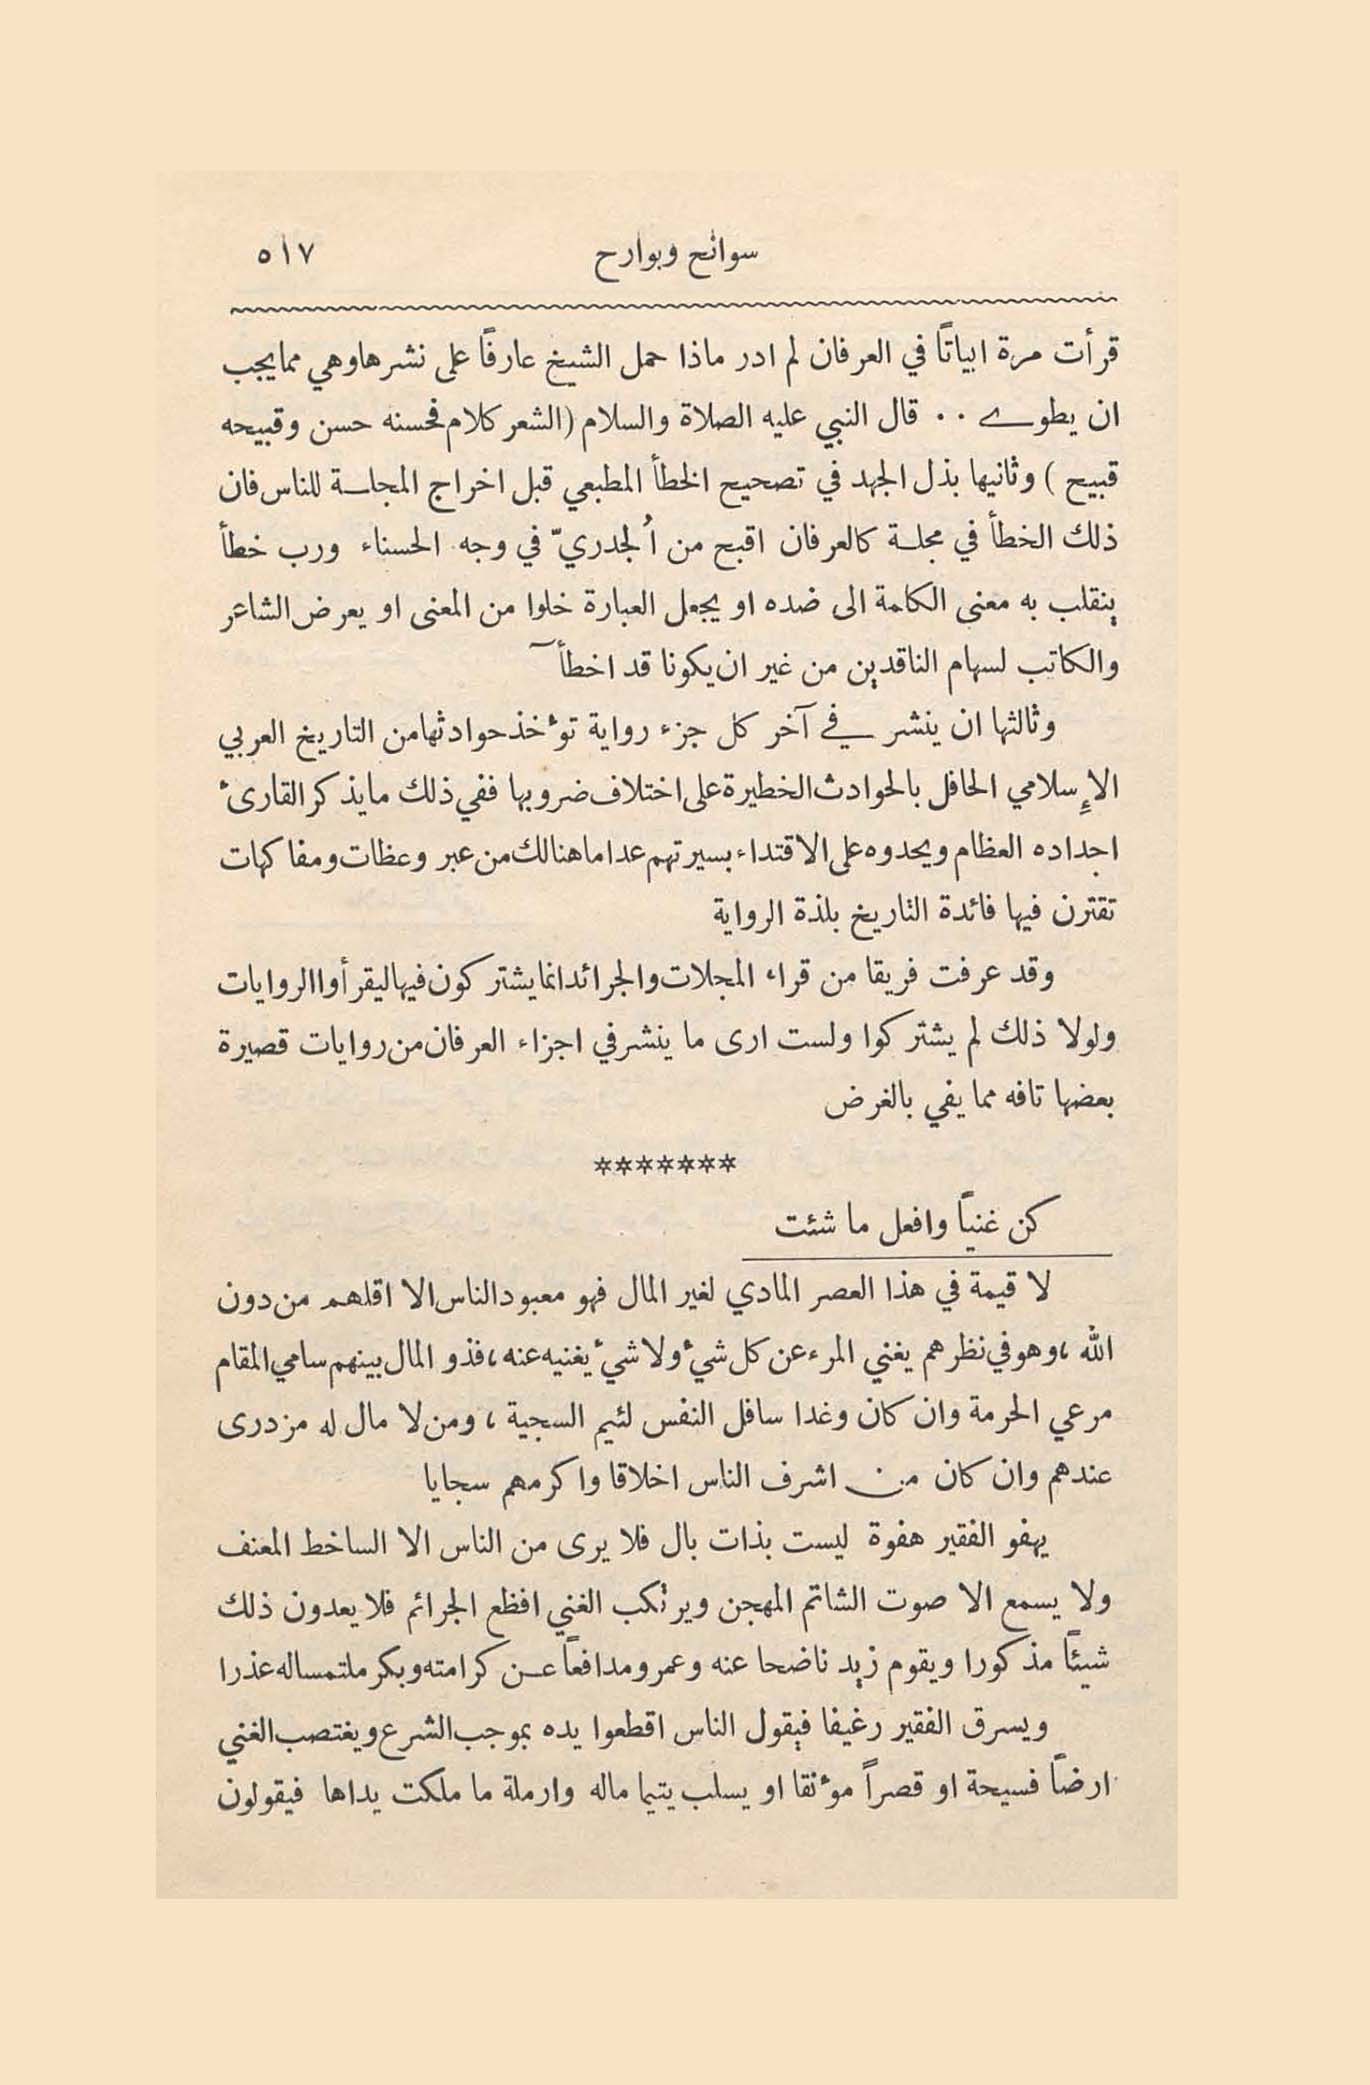 سوانح وبوارح ٥١٧
قرأت مرة ابياتًا في العرفان لم ادر ماذا حمل الشيخ عارفًا على نشرها وهي مما يجب
ان يطوى ٠٠ قال النبي عليه الصلاة والسلام (الشعر كلام فحسنه حسن وقبيحه
قبيح ) وثانيها بذل الجهد في تصحيح الخطأ المطبعي قبل اخراج المجلة للناس فان
ذلك الخطأ في مجلة كالعرفان اقبح من اُلجدريّ في وجه الحسناء ورب خطأ
ينقلب به معنى الكلمة الى ضده او يجعل العبارة خلوا من المعنى او يعرض الشاعر
والكاتب لسهام الناقدين من غير ان يكونا قد اخطأآ
وثالثها ان ينشر في آخر كل جزء رواية تؤخذ حوادثها من التاريخ العربي
الإسلامي الحافل بالحوادث الخطيرة على اختلاف ضروبها ففي ذلك ما يذكر القارئ
اجداده العظام ويحدوه على الاقتداء بسيرتهم عدا ما هنالك من عبر وعظات ومفاكهات
تقترن فيها فائدة التاريخ بلذة الرواية
وقد عرفت فريقا من قراء المجلات والجرائد انما يشتركون فيها ليقرأوا الروايات
ولولا ذلك لم يشتركوا ولست ارى ما ينشر في اجزاء العرفان من روايات قصيرة
بعضها تافه مما يفي بالغرض
*******
كن غنياً وافعل ما شئت
لا قيمة في هذا العصر المادي لغير المال فهو معبود الناس الا اقلهم من دون
الله ، وهو في نظرهم يغني المرء عن كل شيء ولا شيء يغنيه عنه ، فذو المال بينهم سامي المقام
مرعي الحرمة وان كان وغدا سافل النفس لئيم السجية ، ومن لا مال له مزدرى
عندهم وان كان من اشرف الناس اخلاقا واكرمهم سجايا
يهفو الفقير هفوة ليست بذات بال فلا يرى من الناس الا الساخط المعنف
ولا يسمع الا صوت الشاتم المهجن ويرتكب الغني افظع الجرائم فلا يعدون ذلك
شيئاً مذكورا ويقوم زيد ناضحا عنه وعمرو مدافعاً عن كرامته وبكر ملتمسا له عذرا
ويسرق الفقير رغيفا فيقول الناس اقطعوا يده بموجب الشرع ويغتصب الغني
ارضاً فسيحة او قصراً مؤنقا او يسلب يتيما ماله وارملة ما ملكت يداها فيقولون